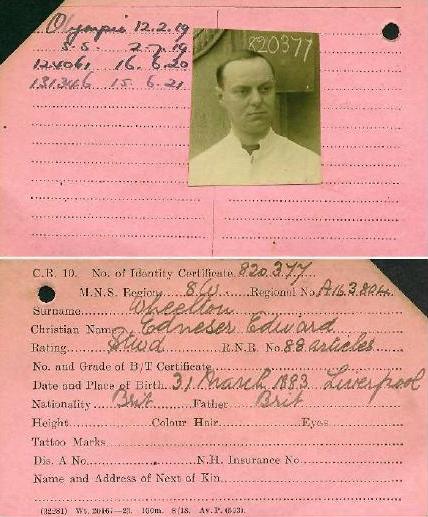 Olympic 12.2.19
S.S. 2.7.19
124061 16.6.20
131346 15.6.21
820377
C.R. 10. No. of Identity Certificate 820,377
M.N.S. Region SW Regional No. A163804
Surname Wheelton
Christian Name Edneser Edward
Rating Stwd R.N.R. No. 88 articles
No. and Grade of B/T Certificate
Date and Place of Birth 31 March 1883 Liverpool
Nationality Brit Father Brit
Height Colour Hair Eyes
Tattoo Marks
Dis. A No. N.H. Insurance No.
Name and Address of Next of Kin
(32281) Wt. 2016/—23. 100m. 8/18. Av. P. (543).